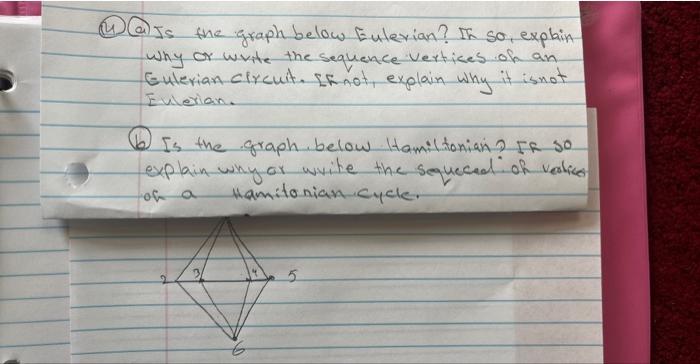 14 a Is the graph below Eulerian? If so, explain
why or write the sequence vertices of an
Eulerian circuit. If not, explain why it is not
Eulerian.
b Is the graph below Hamiltonian? If so
explain why or write the sequeced of vertices
of a Hamitonian cycle.
2 3 4 5
6